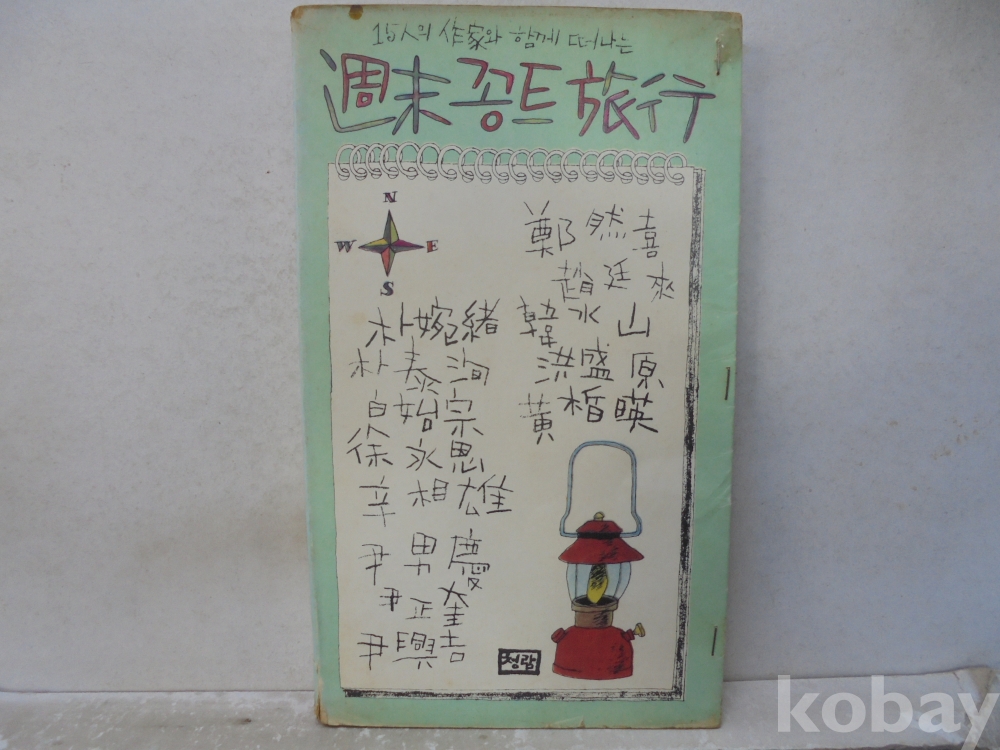 15人의 作家와 함께 떠나는
週末 꽁트 旅行
N
W E
S
朴婉緖
朴泰洵
白始宗
徐永恩
辛相雄
尹男慶
尹正奎
尹興吉
鄭然喜
趙廷來
韓水山
洪盛原
黃楯暎
청람
kobay